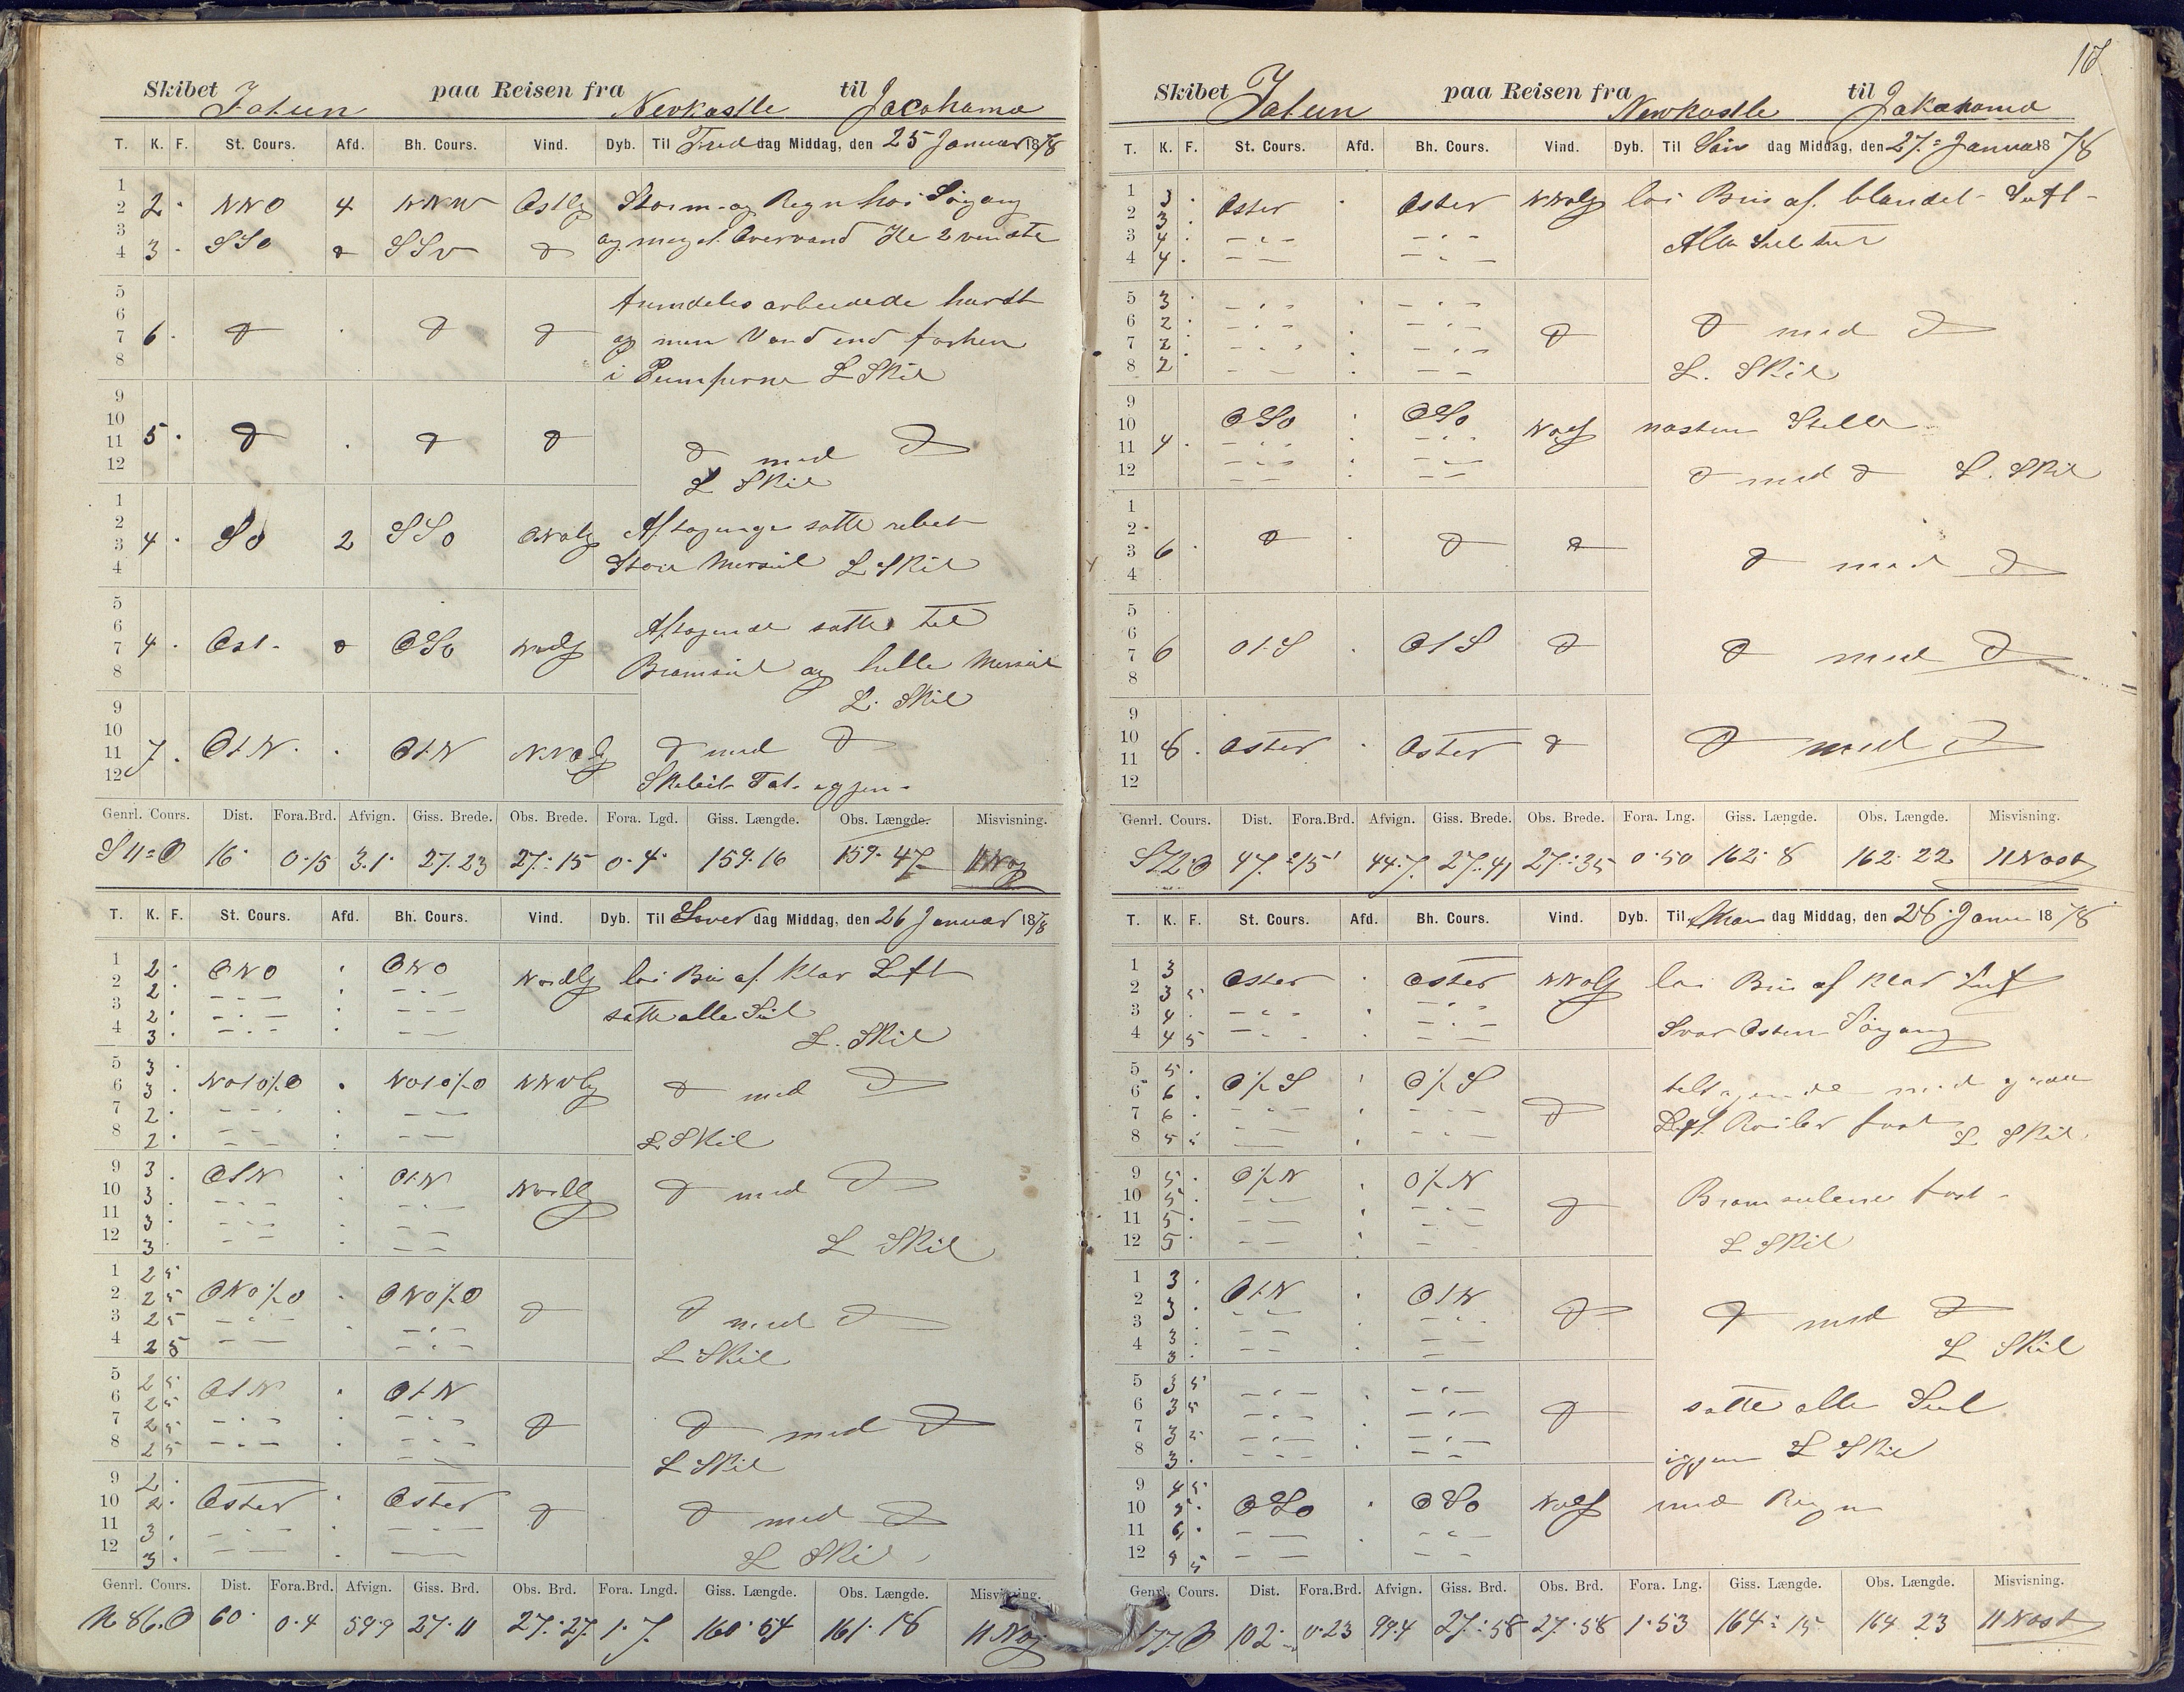 17
Skibet Jatun paa Reisen fra Newkastle til Jacohama
T. K. F. St. Cours. Afd. Bh. Cours. Vind. Dyb. Til Freddag Middag, den 25 Januar 1878
1
2 2 · NNO 4 NNW Ostlg Storm og Regn hoi Søgang
3
4 3 · SSO SSv og meget Overvand Kl 2 vendte
5
6 arbeidede hardt
7 6 · og mere Vand end forhen
8 i Pumperne L Skil
9
10
11 5 · med
12 L Skil
1
2
3 4 · SO 2 SSO ONOlg Aftagende satte rebet
4 Store Mersseil L Skil
5
6 Aftagende satte til
7 4 · Ost OSO Nordlg
8 Bramseil og hele Merseil
9 L. Skil
10
11 7 · OtN · OtN NNOlg med
12
Genrl. Cours. Dist. Fora.Brd. Afvign. Giss. Brede. Obs. Brede. Fora. Lgd. Giss. Længde. Obs. Længde. Misvisning.
S 11° O 16 · 0·15 3.1 · 27·23 27·15 0·4 · 159·16 159·47
T. K. F. St. Cours. Afd. Bh. Cours. Vind. Dyb. Til Løverdag Middag, den 26 Januar 1878
1 2 · ONO · ONO Nordlg loi Bris af klar Luft
2 2 · – · – · – · –
3 2 · – · – · – · – satte alle Seil
4 3 · – · – · – – L. Skil
5 3 ·
6 3 · NOtO½O · NOtO½O NNOlg med
7 2 · – · – · – –
8 2 · – – · – – L Skil
9 3 · OtN · OtN Nordlg med
10 3 · – · – · – · –
11 3 · – · – · – –
12 3 · – – · – – L Skil
1 2 5
2 2 5 ONO½O · ONO½O med
3 2 5 – · – · – · –
4 2 5 – – – · – L Skil
5 2 5 OtN · OtN
6 2 5
7 2 5 – · – · – · – med
8 2 5 – · – · – · – L Skil
9 2 ·
10 2 · Oster · Oster med
11 3 · – · – · – · –
12 3 · – – · – – L Skil
Genrl. Cours. Dist. Fora.Brd. Afvign. Giss. Brd. Obs. Brd. Fora. Lngd. Giss. Længde. Obs. Længde. Misvisning.
N 86·O 60 · 0·4 59·9 27·11 27·27 1·7 160·54 161·18
Skibet Jatun paa Reisen fra Newkastle til Jakahama
T. K. F. St. Cours. Afd. Bh. Cours. Vind. Dyb. Til Søndag Middag, den 27 Januar 1878
1 3 · Oster · Oster NNOlg loi Bris af blandet Luft
2 3 ·
3 4 · – · – – · – Alle Seil til
4 4 · – – – · –
5 3 · – · – · – · –
6 2 · – · – · – · – med
7 2 · – · – · – · –
8 2 – – · – – L. Skil
9
10 OSO · OSO NOlg næsten Stille
11 4 · – · – · – · –
12 – – · – – med L. Skil
1
2
3 6 ·
4 med
5
6
7 6 OtS · OtS med
8
9
10
11 8 · Oster · Oster med
12
Genrl. Cours. Dist. Fora.Brd. Afvign. Giss. Brede. Obs. Brede. Fora. Lng. Giss. Længde. Obs. Længde. Misvisning.
S72·O 47 · 15 44·7 27·41 27·35 0·50 162·8 162·22 11 Nost
T. K. F. St. Cours. Afd. Bh. Cours. Vind. Dyb. Til Mandag Middag, den 28 · Januar 1878
1 3 Oster · Oster NNOlg loi Bris af klar Luft
2 3 5
3 4 · – · – · – · – Svær Osten Søgang
4 4 5 – · – – · –
5 5 · O½S · O½S tiltagende med
6 6 ·
7 6 · – · – · – · – Roiler fast
8 5 5 – – · – · – L Skil
9 5 · O½N · O½N
10 5 · – · – Bramseilene fast
11 5 · – – · – · –
12 5 · – – · – L Skil
1 3 · OtN · OtN
2 3 · – · – – · – med
3 3 · – – · – ·
4 3 · – – · – – L Skil
5 3 5 – · – · – · –
6 3 5 – · – – · – satte alle Seil
7 3 5 – · – · – · –
8 3 · – · – · – – igjen L Skil
9 4 5
10 5 · OSO · OSO NOlg med Regn
11 6 · – – – · –
12 8 5 – – · – –
Genrl. Cours. Dist. Fora.Brd. Afvign. Giss. Brd. Obs. Brd. Fora. Lng. Giss. Længde. Obs. Længde. Misvisning.
77 O 102 · 0·23 99·4 27·58 27·58 1·53 164·15 164 23 11 Nost